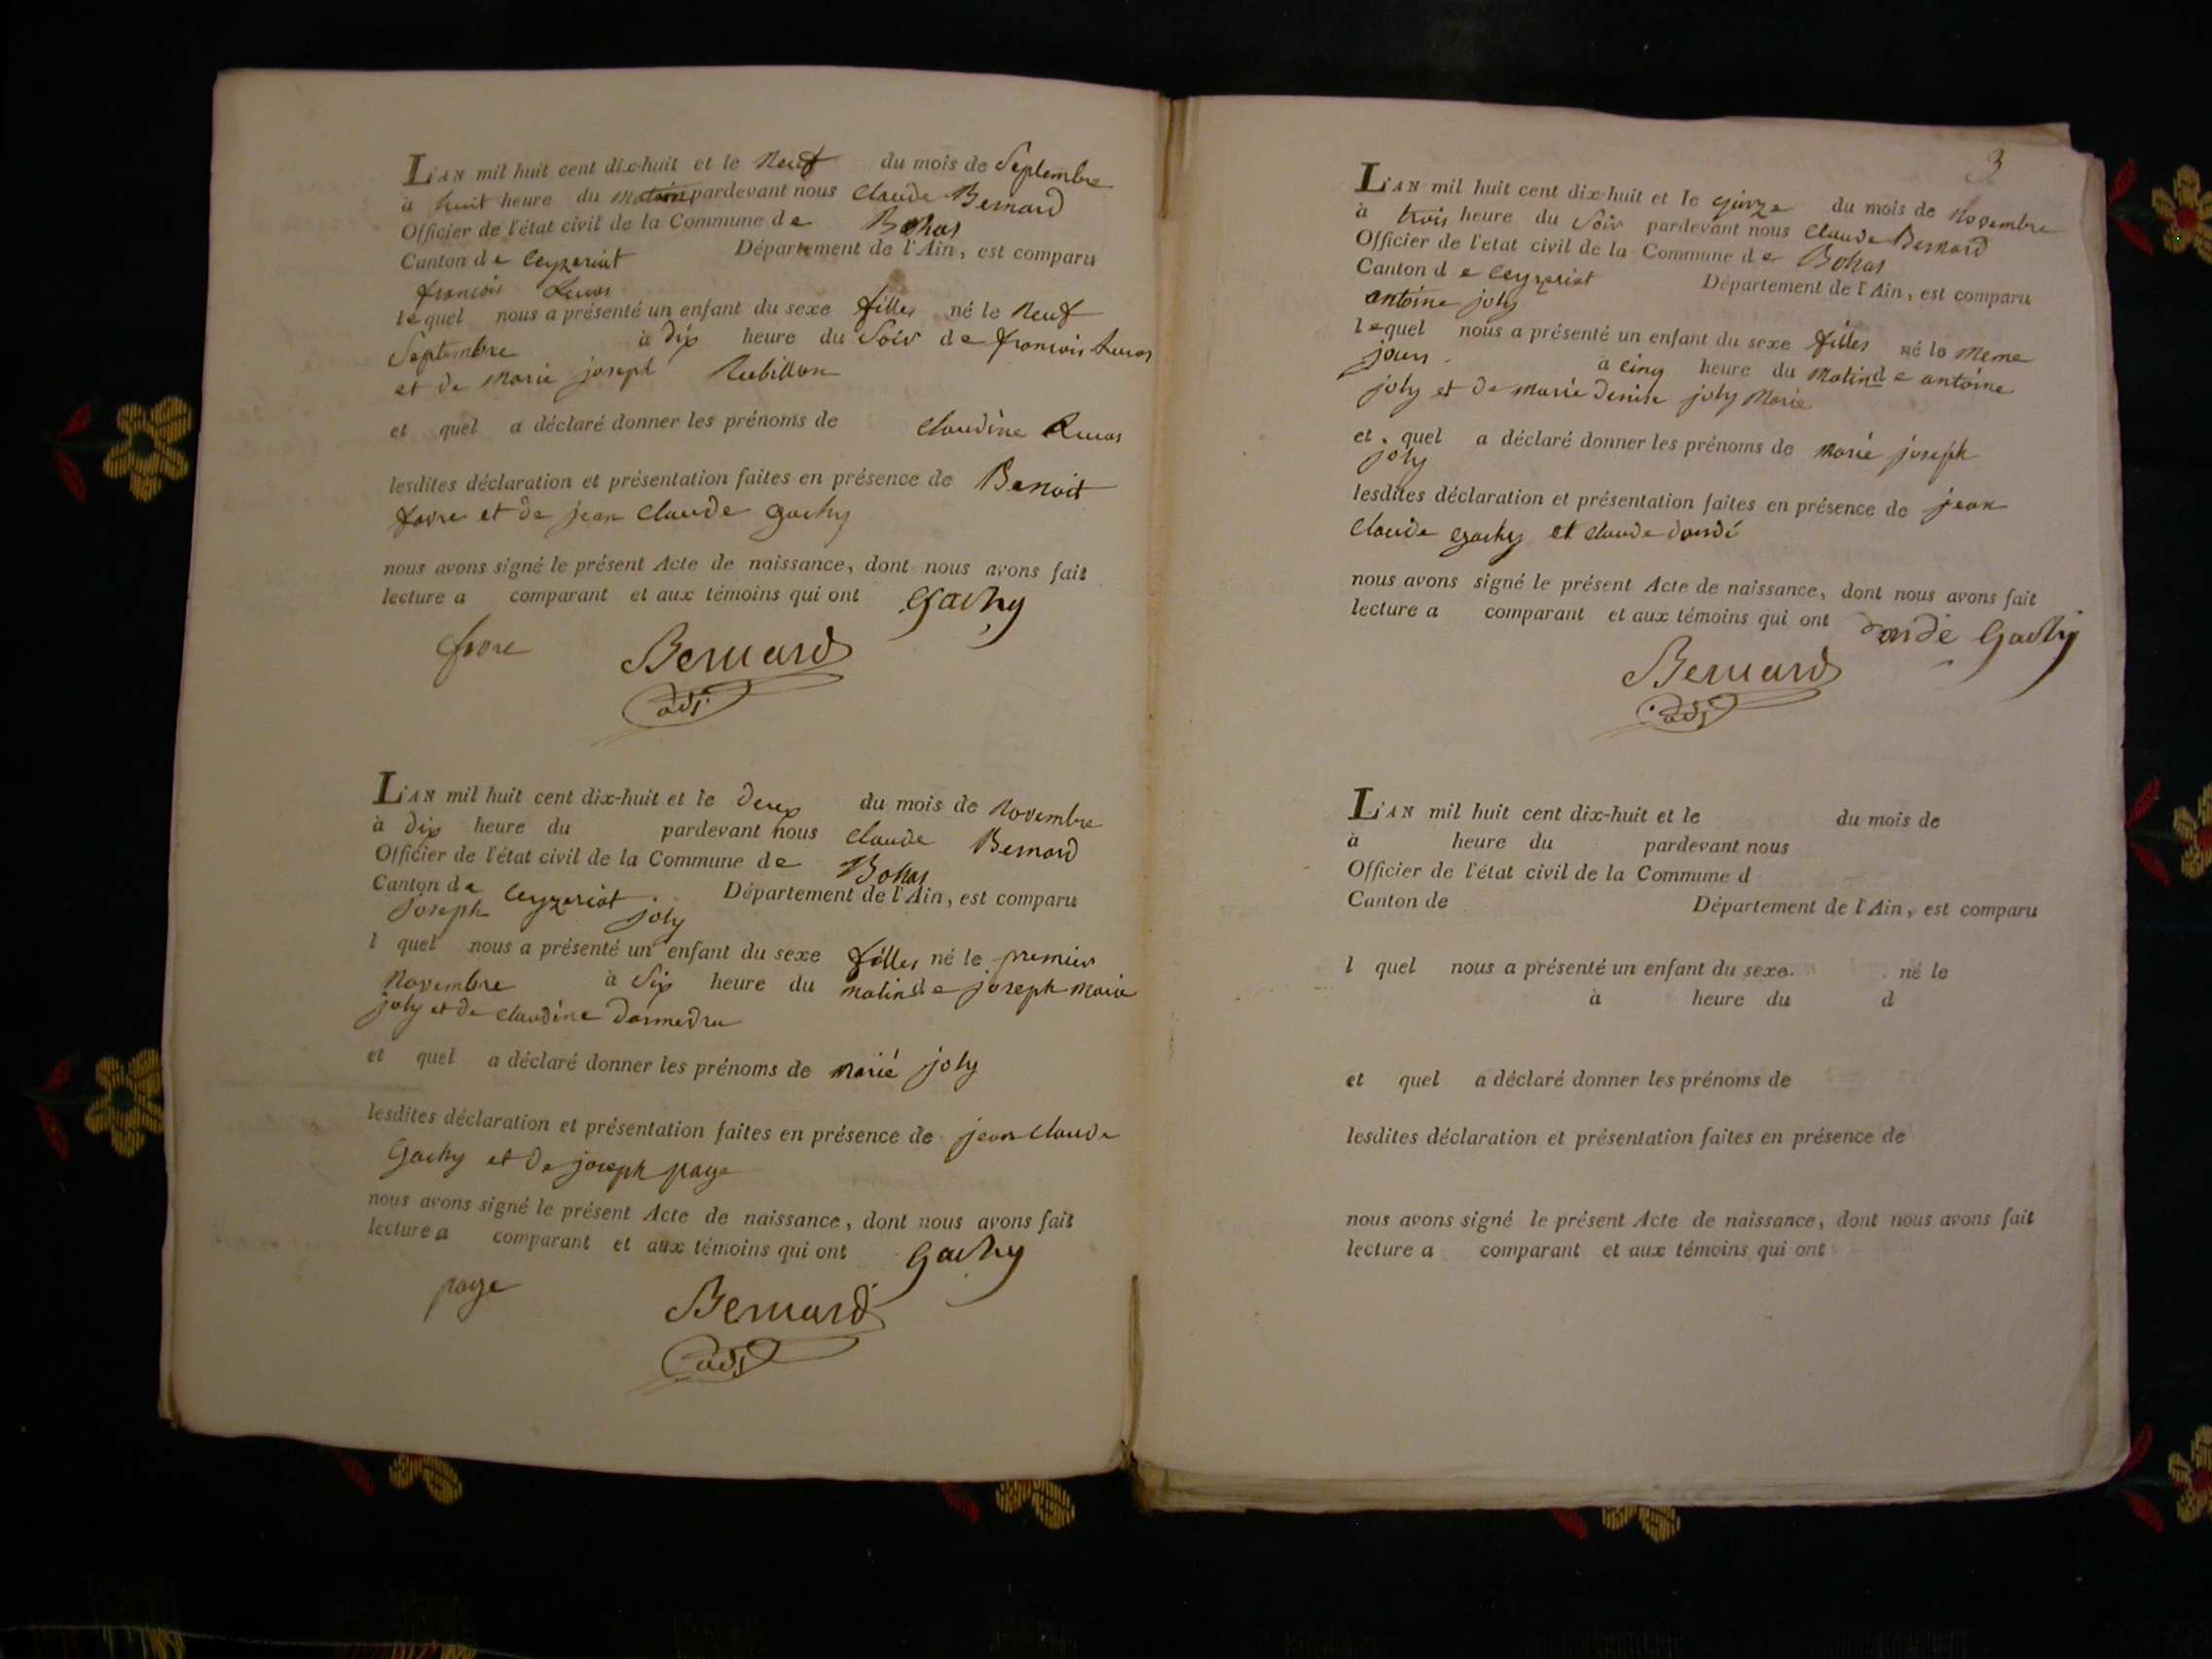 L'AN mil huit cent dix-huit et le Neuf du mois de Septembre
à huit heure du matin pardevant nous Claude Bernard
Officier de l'état civil de la Commune de Bohas
Canton de Ceyzeriat Département de l'Ain, est comparu
francois
lequel nous a présenté un enfant du sexe filles né le Neuf
Septembre à dix heure du Soir de francois
et de Marie joseph
et quel a déclaré donner les prénoms de Claudine
lesdites déclaration et présentation faites en présence de Benoit
favre et de jean Claude Gachy
nous avons signé le présent Acte de naissance, dont nous avons fait
lecture a comparant et aux témoins qui ont Gachy
favre Bernard
adj
L'AN mil huit cent dix-huit et le deux du mois de Novembre
à dix heure du pardevant nous Claude Bernard
Officier de l'état civil de la Commune de Bohas
Canton de Ceyzeriat Département de l'Ain, est comparu
Joseph joly
l quel nous a présenté un enfant du sexe filles né le premier
Novembre à Six heure du matin de joseph Marie
joly et de Claudine
et quel a déclaré donner les prénoms de Marie joly
lesdites déclaration et présentation faites en présence de jean Claude
Gachy et de joseph page
nous avons signé le présent Acte de naissance, dont nous avons fait
lecture a comparant et aux témoins qui ont Gachy
page Bernard
adj
3
L'AN mil huit cent dix-huit et le du mois de Novembre
à trois heure du Soir pardevant nous Claude Bernard
Officier de l'état civil de la Commune de Bohas
Canton de Ceyzeriat Département de l'Ain, est comparu
antoine joly
lequel nous a présenté un enfant du sexe filles né le meme
jours à cinq heure du Matin de antoine
joly et de marie denise joly Marie
et quel a déclaré donner les prénoms de Marie joseph
joly
lesdites déclaration et présentation faites en présence de jean
Claude Gachy et Claude dardé
nous avons signé le présent Acte de naissance, dont nous avons fait
lecture a comparant et aux témoins qui ont dardé Gachy
Bernard
adj
L'AN mil huit cent dix-huit et le du mois de
à heure du pardevant nous
Officier de l'état civil de la Commune d
Canton de Département de l'Ain, est comparu
l quel nous a présenté un enfant du sexe né le
à heure du d
et quel a déclaré donner les prénoms de
lesdites déclaration et présentation faites en présence de
nous avons signé le présent Acte de naissance, dont nous avons fait
lecture a comparant et aux témoins qui ont